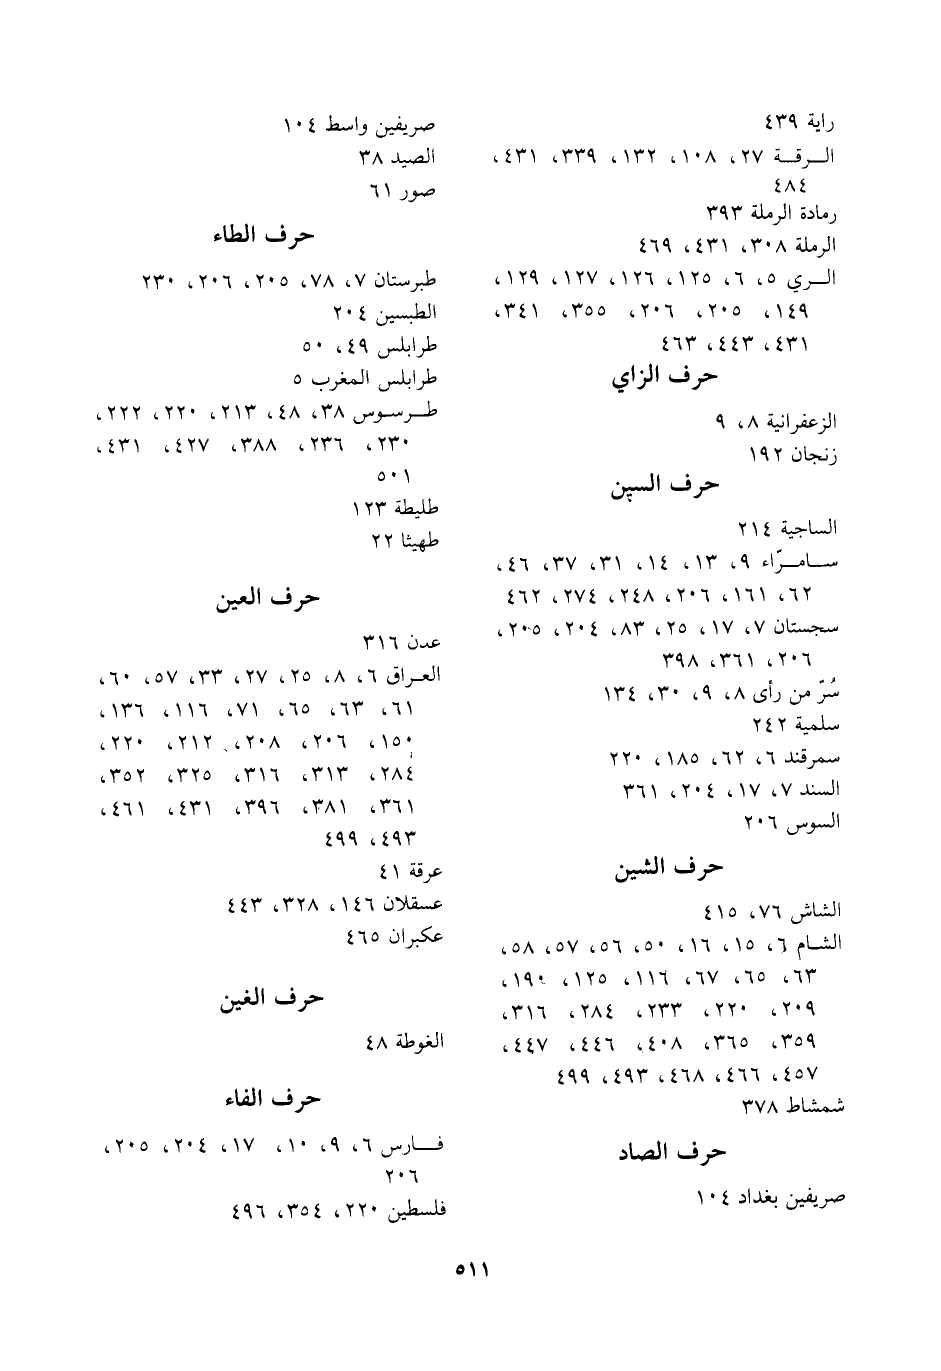 راية ٤٣٩
الـرقـة ٢٧، ١٠٨، ١٣٢، ٣٣٩، ٤٣١،
٤٨٤
رمادة الرملة ٣٩٣
الرملة ٣٠٨، ٤٣١، ٤٦٩
الـري ٥، ٦، ١٢٥، ١٢٦، ١٢٧، ١٢٩،
١٤٩، ٢٠٥، ٢٠٦، ٣٥٥، ٣٤١،
٤٣١، ٤٤٣، ٤٦٣
حرف الزاي
الزعفرانية ٨، ٩
زنجان ١٩٢
حرف السين
الساجية ٢١٤
سـامـرّاء ٩، ١٣، ١٤، ٣١، ٣٧، ٤٦،
٦٢، ١٦١، ٢٠٦، ٢٤٨، ٢٧٤، ٤٦٢
سجستان ٧، ١٧، ٢٥، ٨٣، ٢٠٤، ٢٠٥،
٢٠٦، ٣٦١، ٣٩٨
سُرّ من رأى ٨، ٩، ٣٠، ١٣٤
سلمية ٢٤٢
سمرقند ٦، ٦٢، ١٨٥، ٢٢٠
السند ٧، ١٧، ٢٠٤، ٣٦١
السوس ٢٠٦
حرف الشين
الشاش ٧٦، ٤١٥
الشـام ٦، ١٥، ١٦، ٥٠، ٥٦، ٥٧، ٥٨،
٦٣، ٦٥، ٦٧، ١١٦، ١٢٥، ١٩٠،
٢٠٩، ٢٢٠، ٢٣٣، ٢٨٤، ٣١٦،
٣٥٩، ٣٦٥، ٤٠٨، ٤٤٦، ٤٤٧،
٤٥٧، ٤٦٦، ٤٦٨، ٤٩٣، ٤٩٩
شمشاط ٣٧٨
حرف الصاد
صريفين بغداد ١٠٤
صريفين واسط ١٠٤
الصيد ٣٨
صور ٦١
حرف الطاء
طبرستان ٧، ٧٨، ٢٠٥، ٢٠٦، ٢٣٠
الطبسين ٢٠٤
طرابلس ٤٩، ٥٠
طرابلس المغرب ٥
طـرسـوس ٣٨، ٤٨، ٢١٣، ٢٢٠، ٢٢٢،
٢٣٠، ٢٣٦، ٣٨٨، ٤٢٧، ٤٣١،
٥٠١
طليطة ١٢٣
طهيثا ٢٢
حرف العين
عدن ٣١٦
العـراق ٦، ٨، ٢٥، ٢٧، ٣٣، ٥٧، ٦٠،
٦١، ٦٣، ٦٥، ٧١، ١١٦، ١٣٦،
١٥٠، ٢٠٦، ٢٠٨، ٢١٢، ٢٢٠،
٢٨٤، ٣١٣، ٣١٦، ٣٢٥، ٣٥٢،
٣٦١، ٣٨١، ٣٩٦، ٤٣١، ٤٦١،
٤٩٣، ٤٩٩
عرقة ٤١
عسقلان ١٤٦، ٣٢٨، ٤٤٣
عكبران ٤٦٥
حرف الغين
الغوطة ٤٨
حرف الفاء
فـارس ٦، ٩، ١٠، ١٧، ٢٠٤، ٢٠٥،
٢٠٦
فلسطين ٢٢٠، ٣٥٤، ٤٩٦
٥١١